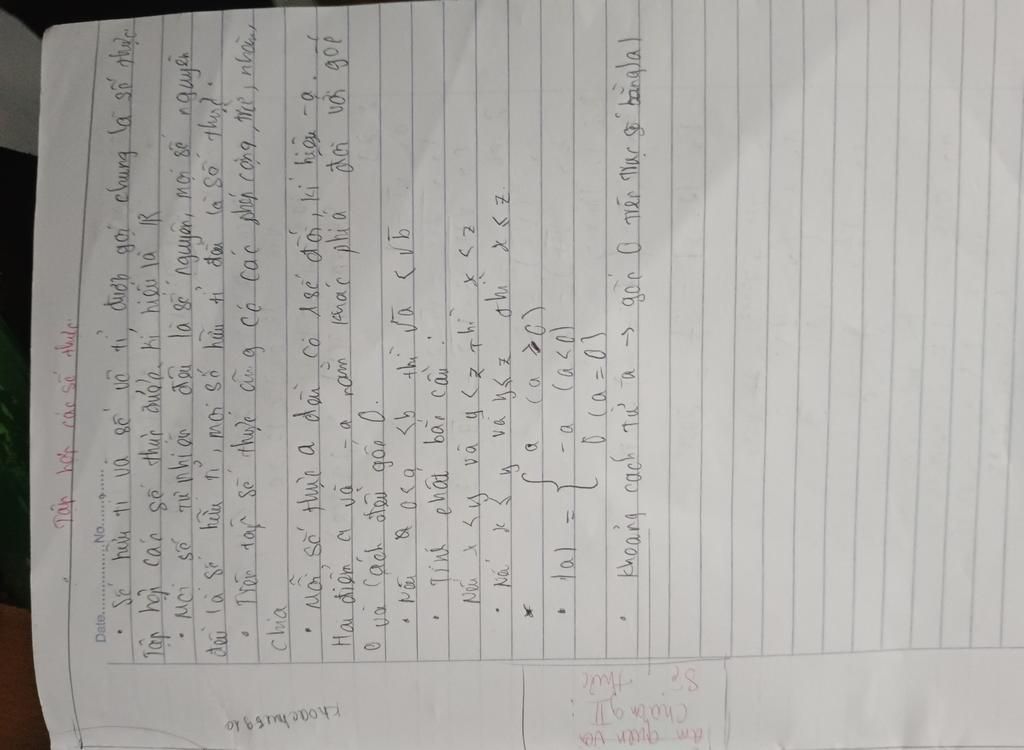 Tập hợp các số thực
Date.............No.............
• Số hữu tỉ và số vô tỉ được gọi chung là số thực
Tập hợp các số thực được kí hiệu là ℝ
• Mọi số tự nhiên đều là số nguyên, mọi số nguyên
đều là số hữu tỉ, mọi số hữu tỉ đều là số thực.
• Trên tập số thực cũng có các phép cộng, trừ, nhân,
chia
• Mỗi số thực a đều có 1 số đối, kí hiệu -a.
Hai điểm a và -a nằm khác phía đối với gốc
0 và cách đều gốc 0.
• Nếu 0<a<b thì √a < √b
• Tính chất bắc cầu:
Nếu x < y và y < z thì x < z
• Nế x ≤ y và y ≤ z thì x ≤ z.
• |a| = { a (a ≥ 0)
-a (a < 0)
0 (a = 0)
• khoảng cách từ a → gốc 0 trên trục số bằng |a|
khoachu5910
Làm quen với
Chương II:
Số thực